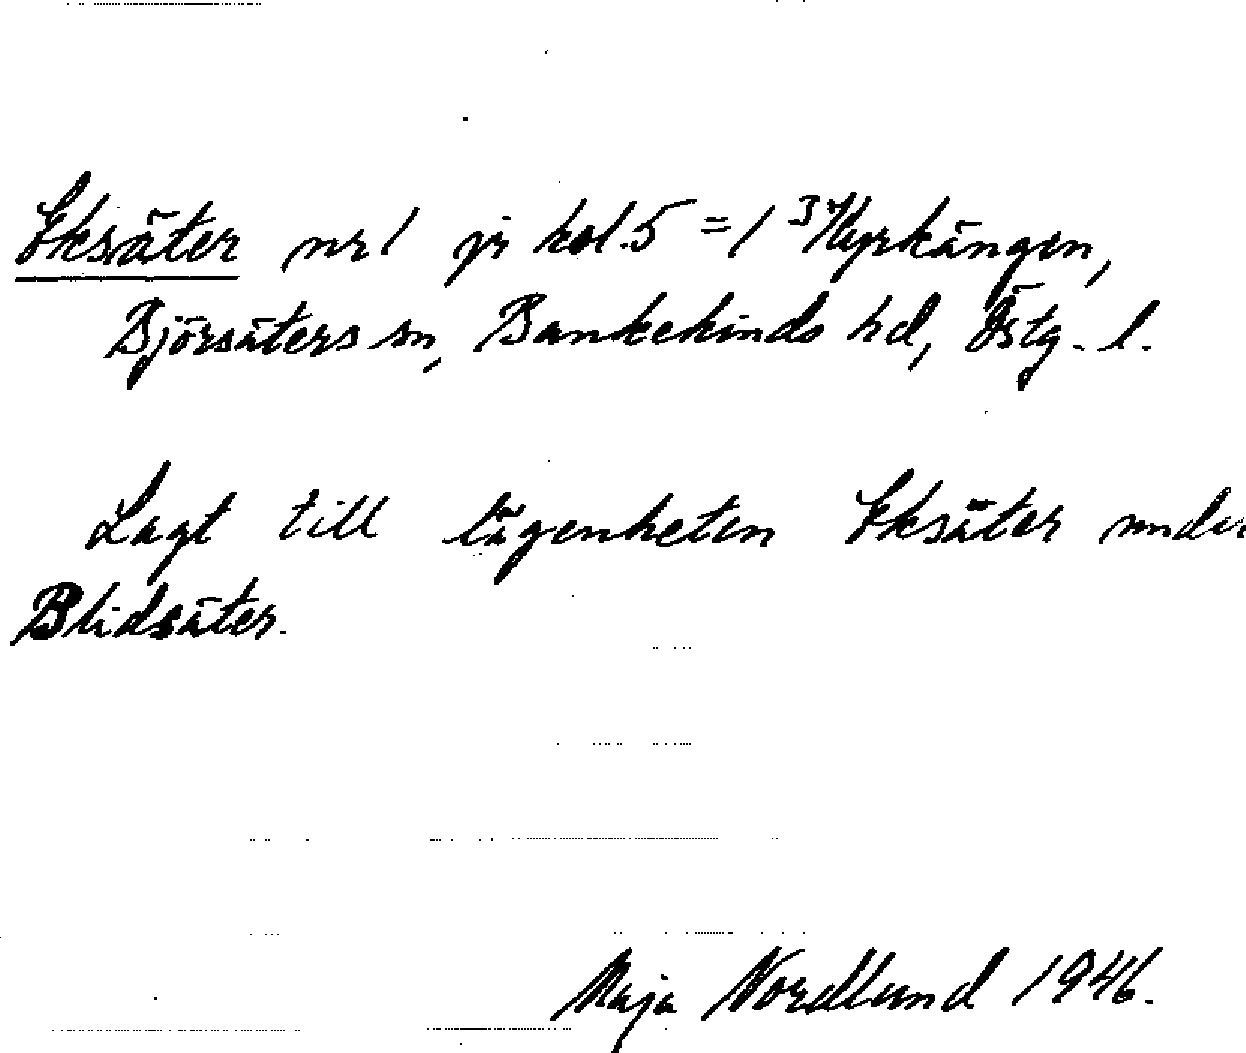 Eksäter nr 1 jr kol. 5 = 1 ³ Kyrkängen,
Björsäters sn, Bankekinds hd, Östg. l.
Lagt till lägenheten Eksäter under
Blidsäter.
Maja Nordlund 1946.